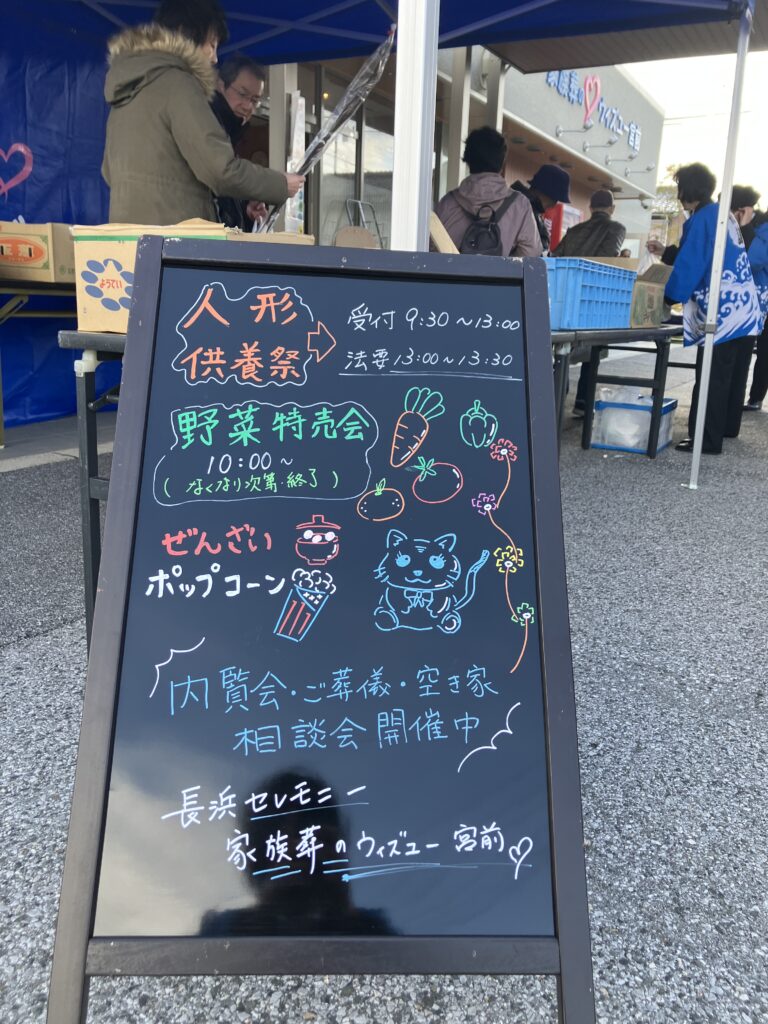 家族葬の ウィズユー宮前
ようてい
人形
供養祭
受付 9:30～13:00
法要 13:00～13:30
野菜特売会
10:00～
(なくなり次第・終了)
ぜんざい
ポップコーン
内覧会・ご葬儀・空き家
相談会開催中
長浜セレモニー
家族葬のウィズユー宮前